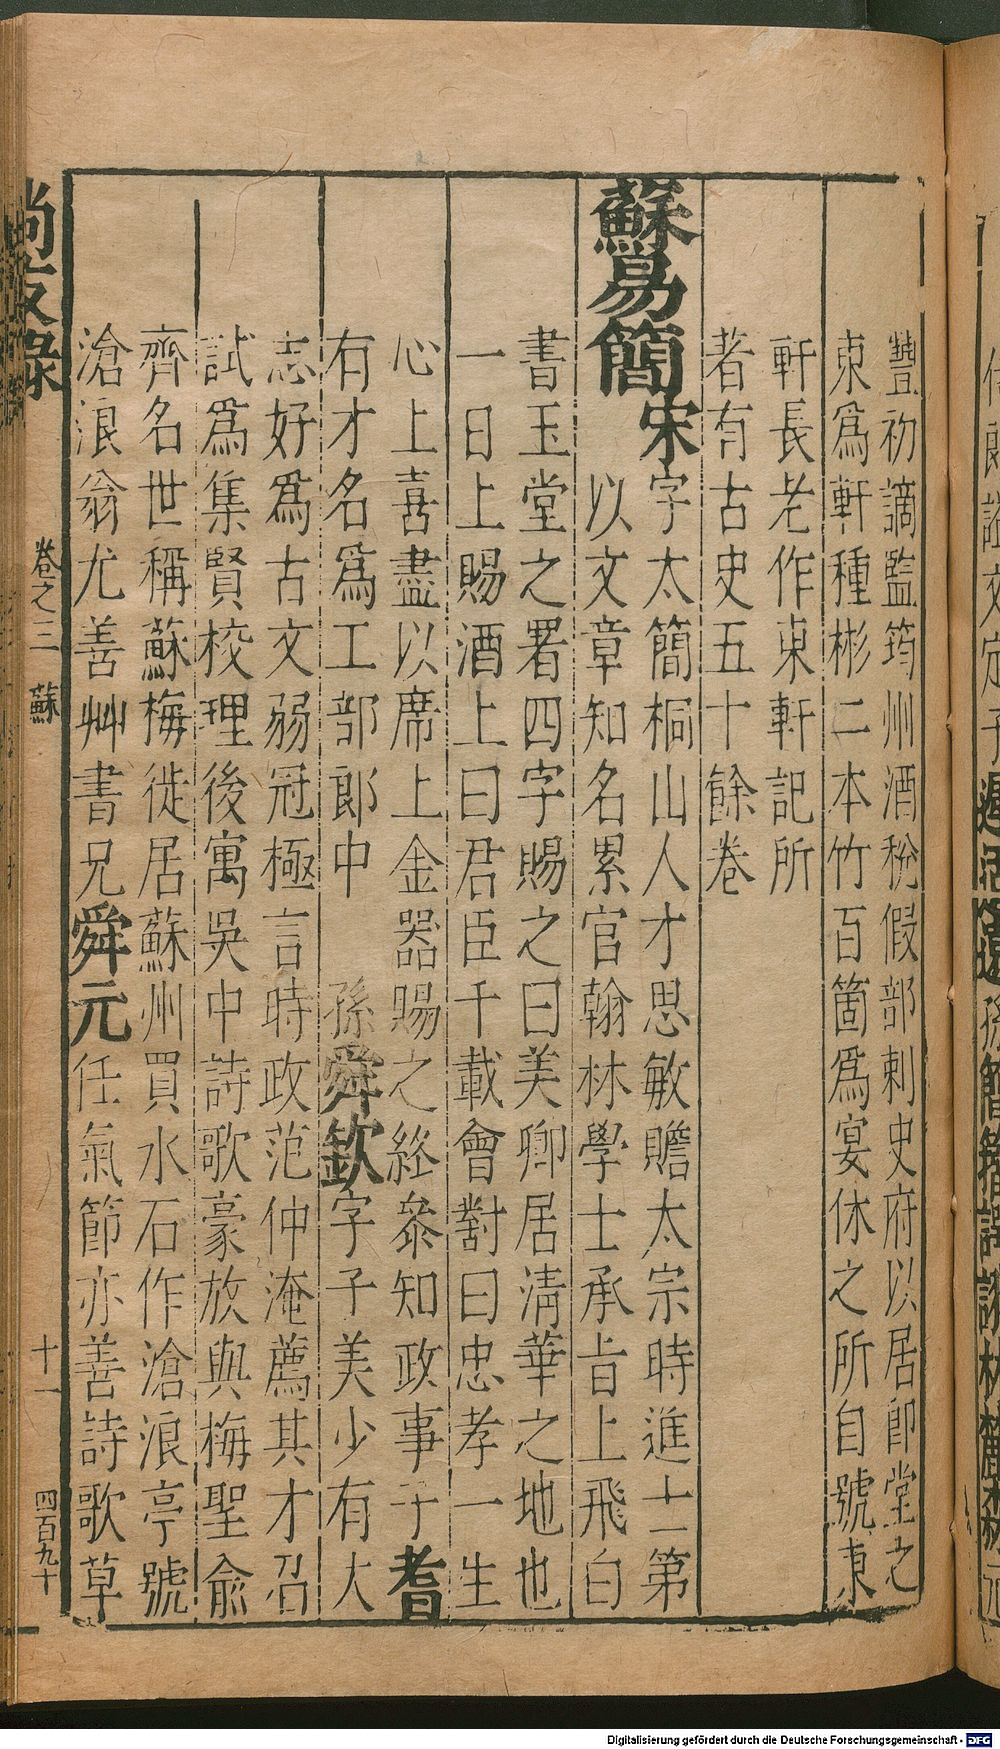 豐初謫監筠州酒稅假部刺史府以居卽堂之
東爲軒種彬二本竹百箇爲宴休之所自號東
軒長老作東軒記所
著有古史五十餘卷
蘇易簡宋字太簡桐山人才思敏贍太宗時進士第
以文章知名累官翰林學士承旨上飛白
書玉堂之署四字賜之曰美卿居清華之地也
一日上賜酒上曰君臣千載會對曰忠孝一生
心上喜盡以席上金器賜之終參知政事子耆
有才名爲工部郎中 孫舜欽字子美少有大
志好爲古文弱冠極言時政范仲淹薦其才召
試爲集賢校理後寓吳中詩歌豪放與梅聖俞
齊名世稱蘇梅徙居蘇州買水石作滄浪亭號
滄浪翁尤善艸書兄舜元任氣節亦善詩歌草
尚友錄 卷之三 蘇 十一 四百九十
Digitalisierung gefördert durch die Deutsche Forschungsgemeinschaft - DFG